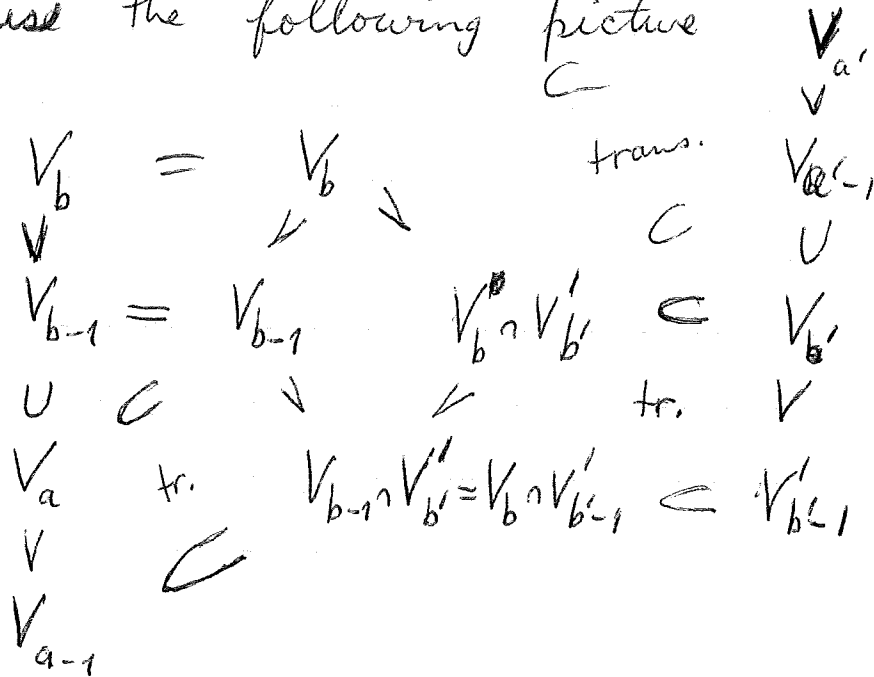 use the following picture V_{a'}
⊂ ∨
V_b = V_b trans. V_{a'-1}
∨ ∨ ∨ ⊂ ∪
V_{b-1} = V_{b-1} V_b ∩ V'_{b'} ⊂ V_{b'}
∪ ⊂ ∨ ∨ tr. ∨
V_a tr. V_{b-1} ∩ V'_{b'} = V_b ∩ V'_{b'-1} ⊂ V'_{b'-1}
∨ ⊂
V_{a-1}